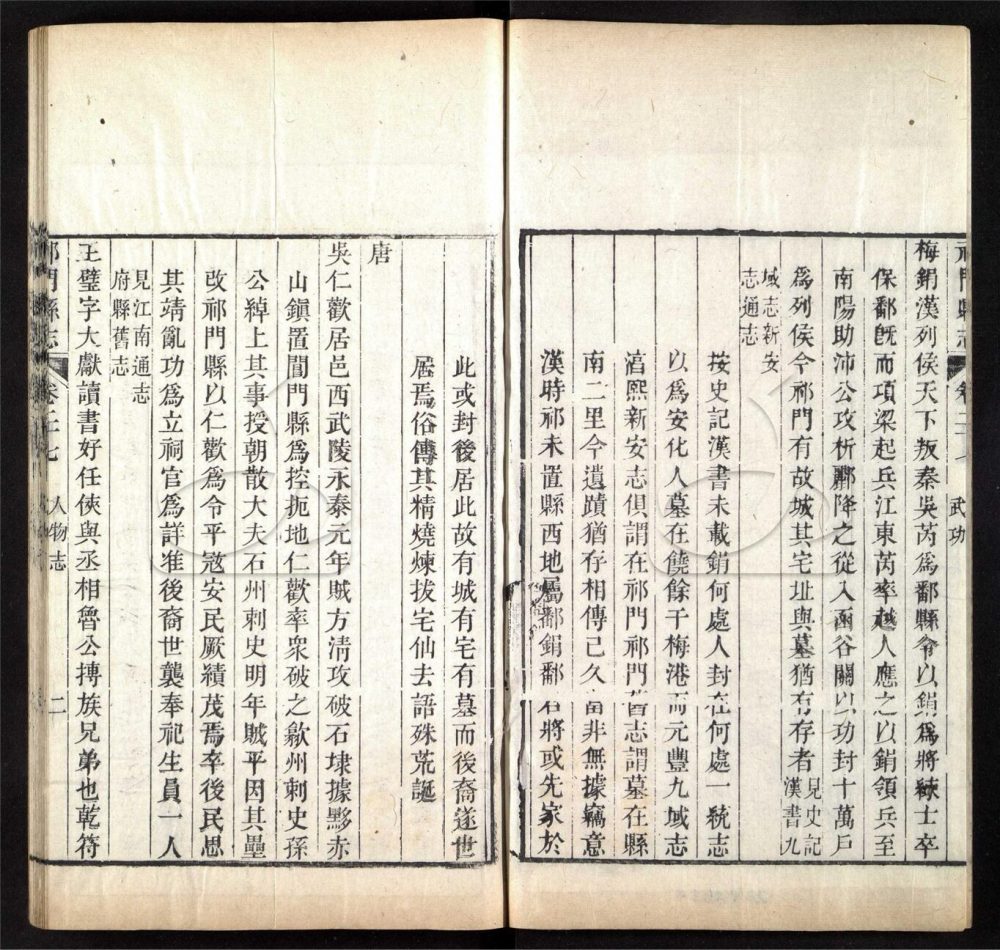 祁門縣志
卷二十七
武功
梅鋗漢列侯天下叛秦吳芮爲鄱縣令以鋗爲將練士卒
保鄱旣而項梁起兵江東芮率越人應之以鋗領兵至
南陽助沛公攻析酈降之從入函谷關以功封十萬戶
爲列侯今祁門有故城其宅址與墓猶有存者見史記
漢書九
域志新安
志通志
按史記漢書未載鋗何處人封在何處一統志
以爲安化人墓在饒餘干梅港而元豐九域志
湻熙新安志俱謂在祁門祁門舊志謂墓在縣
南二里今遺蹟猶存相傳已久當非無據竊意
漢時祁未置縣西地屬鄱鋗鄱君將或先家於
此或封後居此故有城有宅有墓而後裔遂世
居焉俗傳其精燒煉拔宅仙去語殊荒誕
唐
吳仁歡居邑西武陵永泰元年賊方清攻破石埭據黟赤
山鎮置閶門縣爲控扼地仁歡率衆破之歙州刺史孫
公綽上其事授朝散大夫石州刺史明年賊平因其壘
改祁門縣以仁歡爲令平寇安民厥績茂焉卒後民思
其靖亂功爲立祠官爲詳准後裔世襲奉祀生員一人
見江南通志
府縣舊志
王璧字大獻讀書好任俠與丞相魯公摶族兄弟也乾符
祁門縣志
卷二十七
人物志
二